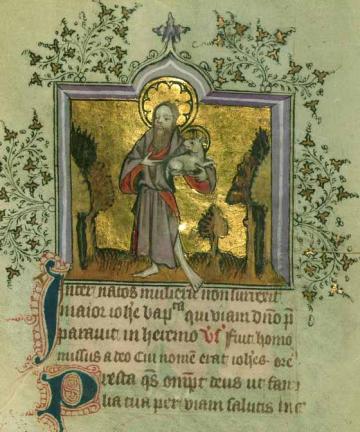 Inter natos mulierum non surrexit
maior iohe bapta qui viam dno p
paravit in heremo vs fuit homo
missus a deo Cui nomē erat iohes ore
Presta qs omps deus ut fami
lia tua per viam salutis inc